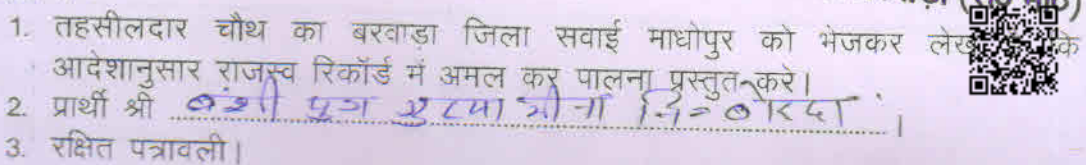 1. तहसीलदार चौथ का बरवाडा जिला सवाई माधोपुर को भेजकर लेख के
आदेशानुसार राजस्व रिकॉर्ड में अमल कर पालना प्रस्तुत करे।
2. प्रार्थी श्री बंशी पुत्र मीना ।
3. रक्षित पत्रावली।